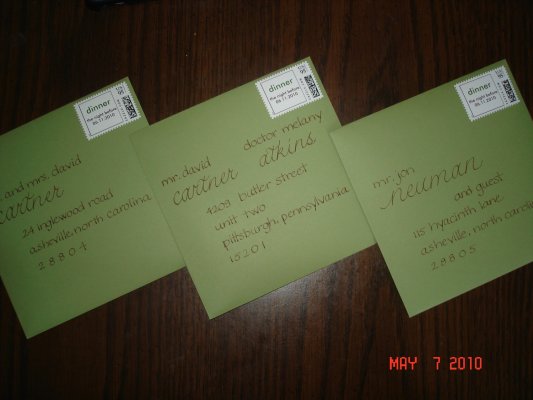 dinner
the night before
06.11.2010
. and mrs. david
cartner
24 inglewood road
asheville, north carolina
28804
dinner
the night before
06.11.2010
mr. david doctor melany
cartner atkins
4209 butler street
unit two
pittsburgh, pennsylvania
15201
dinner
the night before
06.11.2010
mr. jon
neuman
and guest
115 hyacinth lane
asheville, north carolin
28805
MAY 7 2010